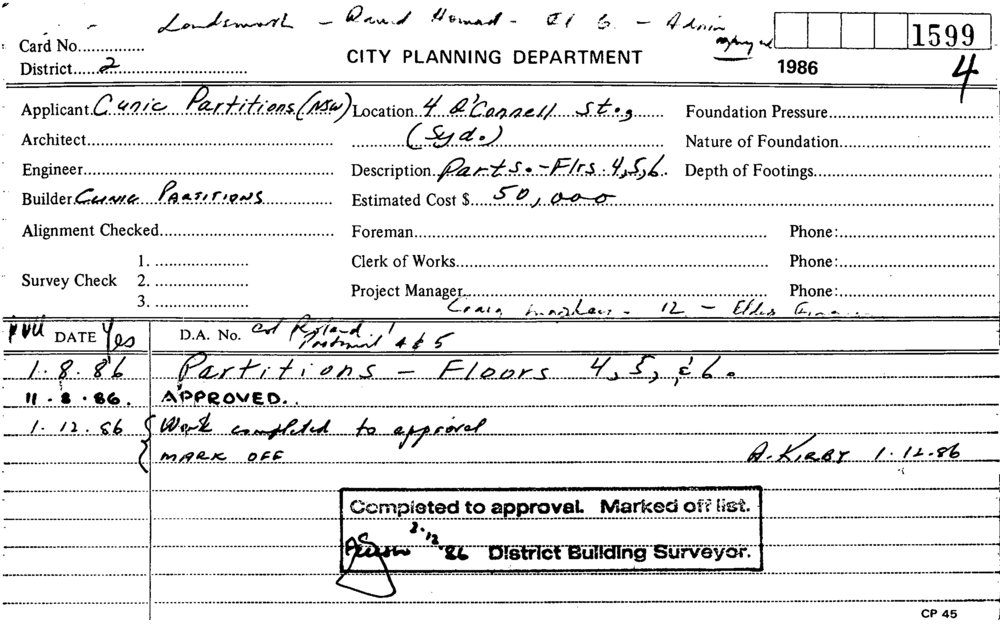 Card No.
1599
CITY PLANNING DEPARTMENT
District 2
1986
4
Applicant Cunic Partitions (NSW) Location 4 O'Connell St., Foundation Pressure
Architect (Syd.) Nature of Foundation
Engineer Description Parts.-Flrs. 4,5,6. Depth of Footings
Builder CUNIC PARTITIONS Estimated Cost $ 50,000
Alignment Checked Foreman Phone:
1. Clerk of Works Phone:
Survey Check 2.
3. Project Manager Phone:
Craig - 12 - Elders
DATE Yes D.A. No. 4 & 5
1.8.86 Partitions - Floors 4,5, & 6.
11.8.86. APPROVED.
1.12.86 Work completed to approval
MARK OFF A. KIRBY 1.12.86
Completed to approval. Marked off list.
2.12.86 District Building Surveyor.
CP 45